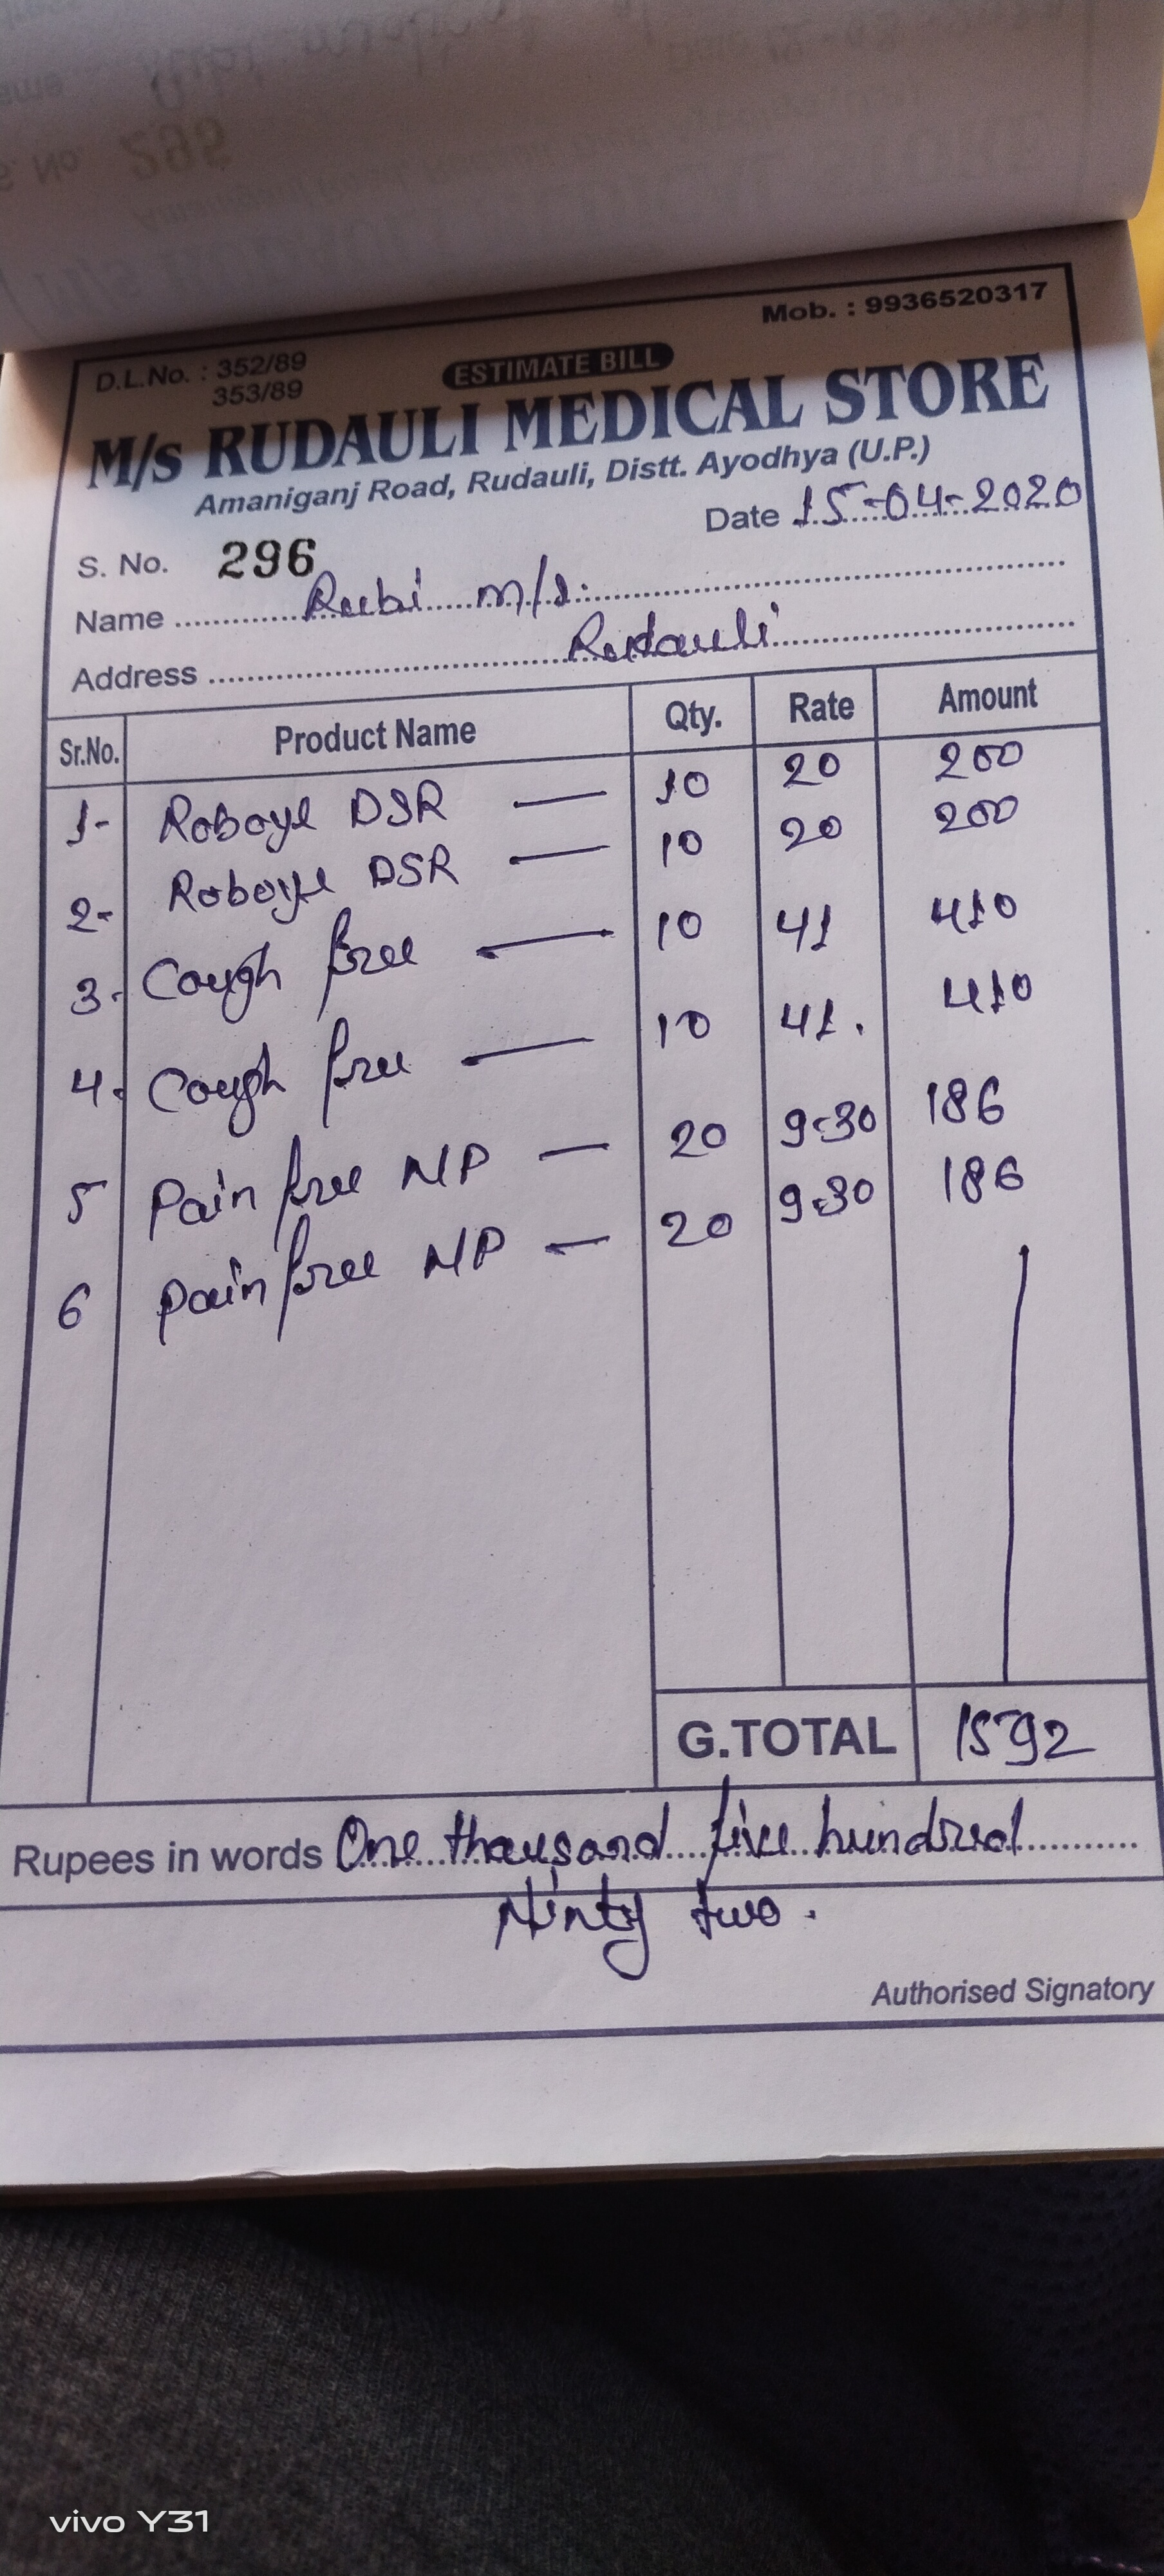 S. No. 295
Mob. : 9936520317
D.L.No. : 352/89
353/89
ESTIMATE BILL
M/s RUDAULI MEDICAL STORE
Amaniganj Road, Rudauli, Distt. Ayodhya (U.P.)
Date 15-04-2020
S. No. 296
Name Rubi m/s.
Address Rudauli
Sr.No. Product Name Qty. Rate Amount
1- DSR — 10 20 200
2- DSR — 10 20 200
3. Cough free — 10 41 410
4. Cough free — 10 41. 410
5 Pain free NP — 20 9.30 186
6 Pain free NP — 20 9.30 186
G.TOTAL 1592
Rupees in words One thousand five hundred
Ninty two.
Authorised Signatory
vivo Y31